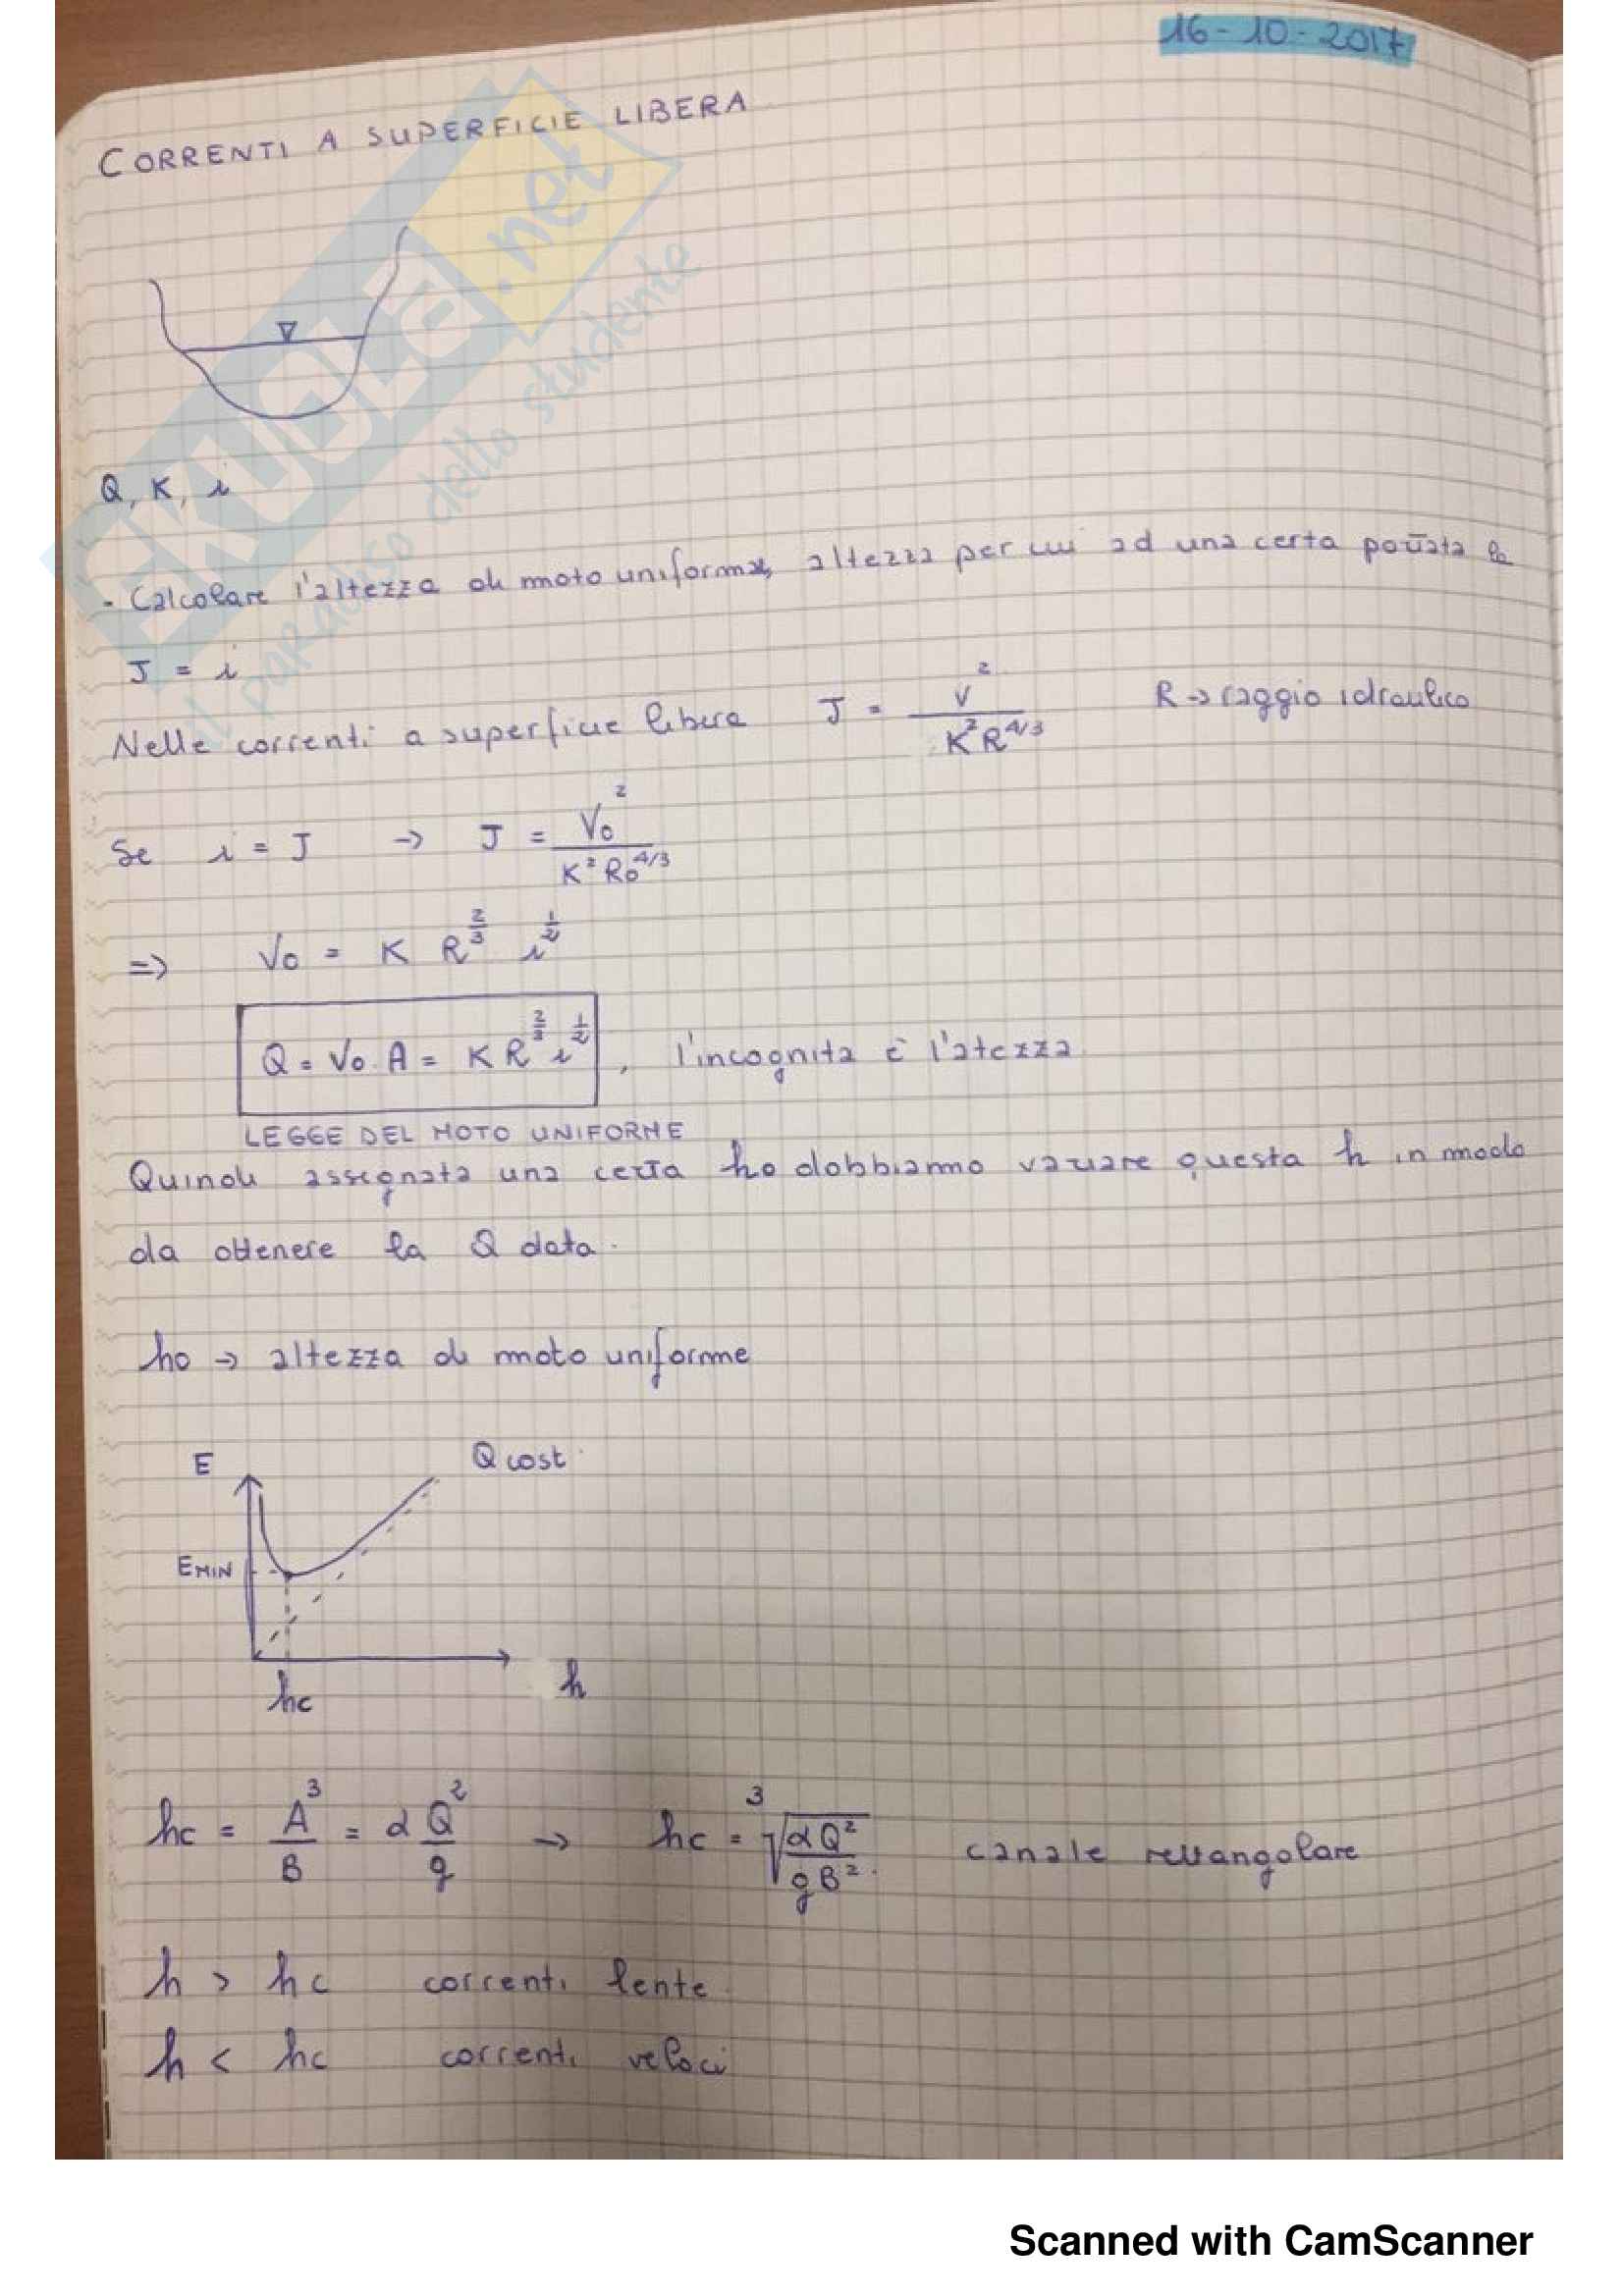 16-10-2017
CORRENTI A SUPERFICIE LIBERA
SKUOLA.net
il paradiso dello studente
Q, K, i
- Calcolare l'altezza di moto uniforme, altezza per cui ad una certa portata la
J = i
Nelle correnti a superficie libera J = V² / K²R^4/3 R → raggio idraulico
Se i = J → J = V0² / K² R0^4/3
=> V0 = K R^2/3 i^1/2
Q = V0 · A = K R^2/3 i^1/2 , l'incognita è l'atezza
LEGGE DEL MOTO UNIFORME
Quindi assegnata una certa h0 dobbiamo variare questa h in modo
da ottenere la Q data.
h0 → altezza di moto uniforme
E Q cost.
EMIN
h
hc
hc = A³/B = α Q²/g → hc = ³√(αQ²/gB²) canale rettangolare
h > hc correnti lente
h < hc correnti veloci
Scanned with CamScanner